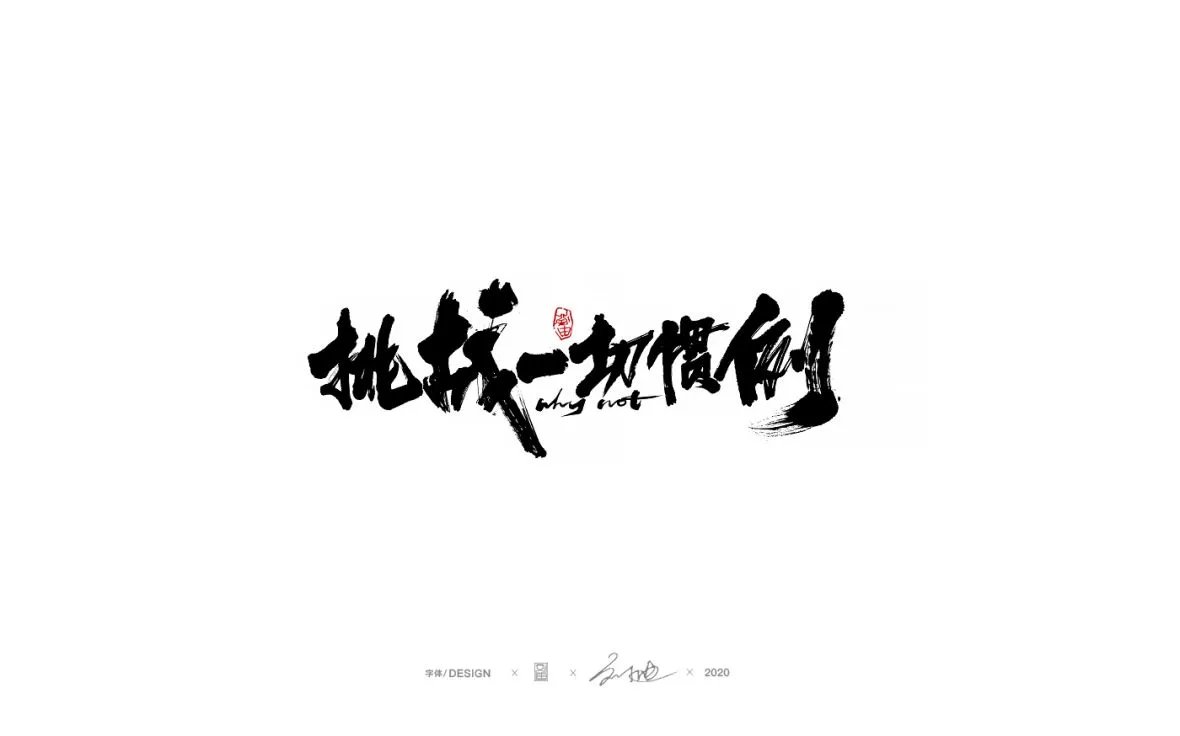 挑战一切惯例
why not
字体/DESIGN × × × 2020